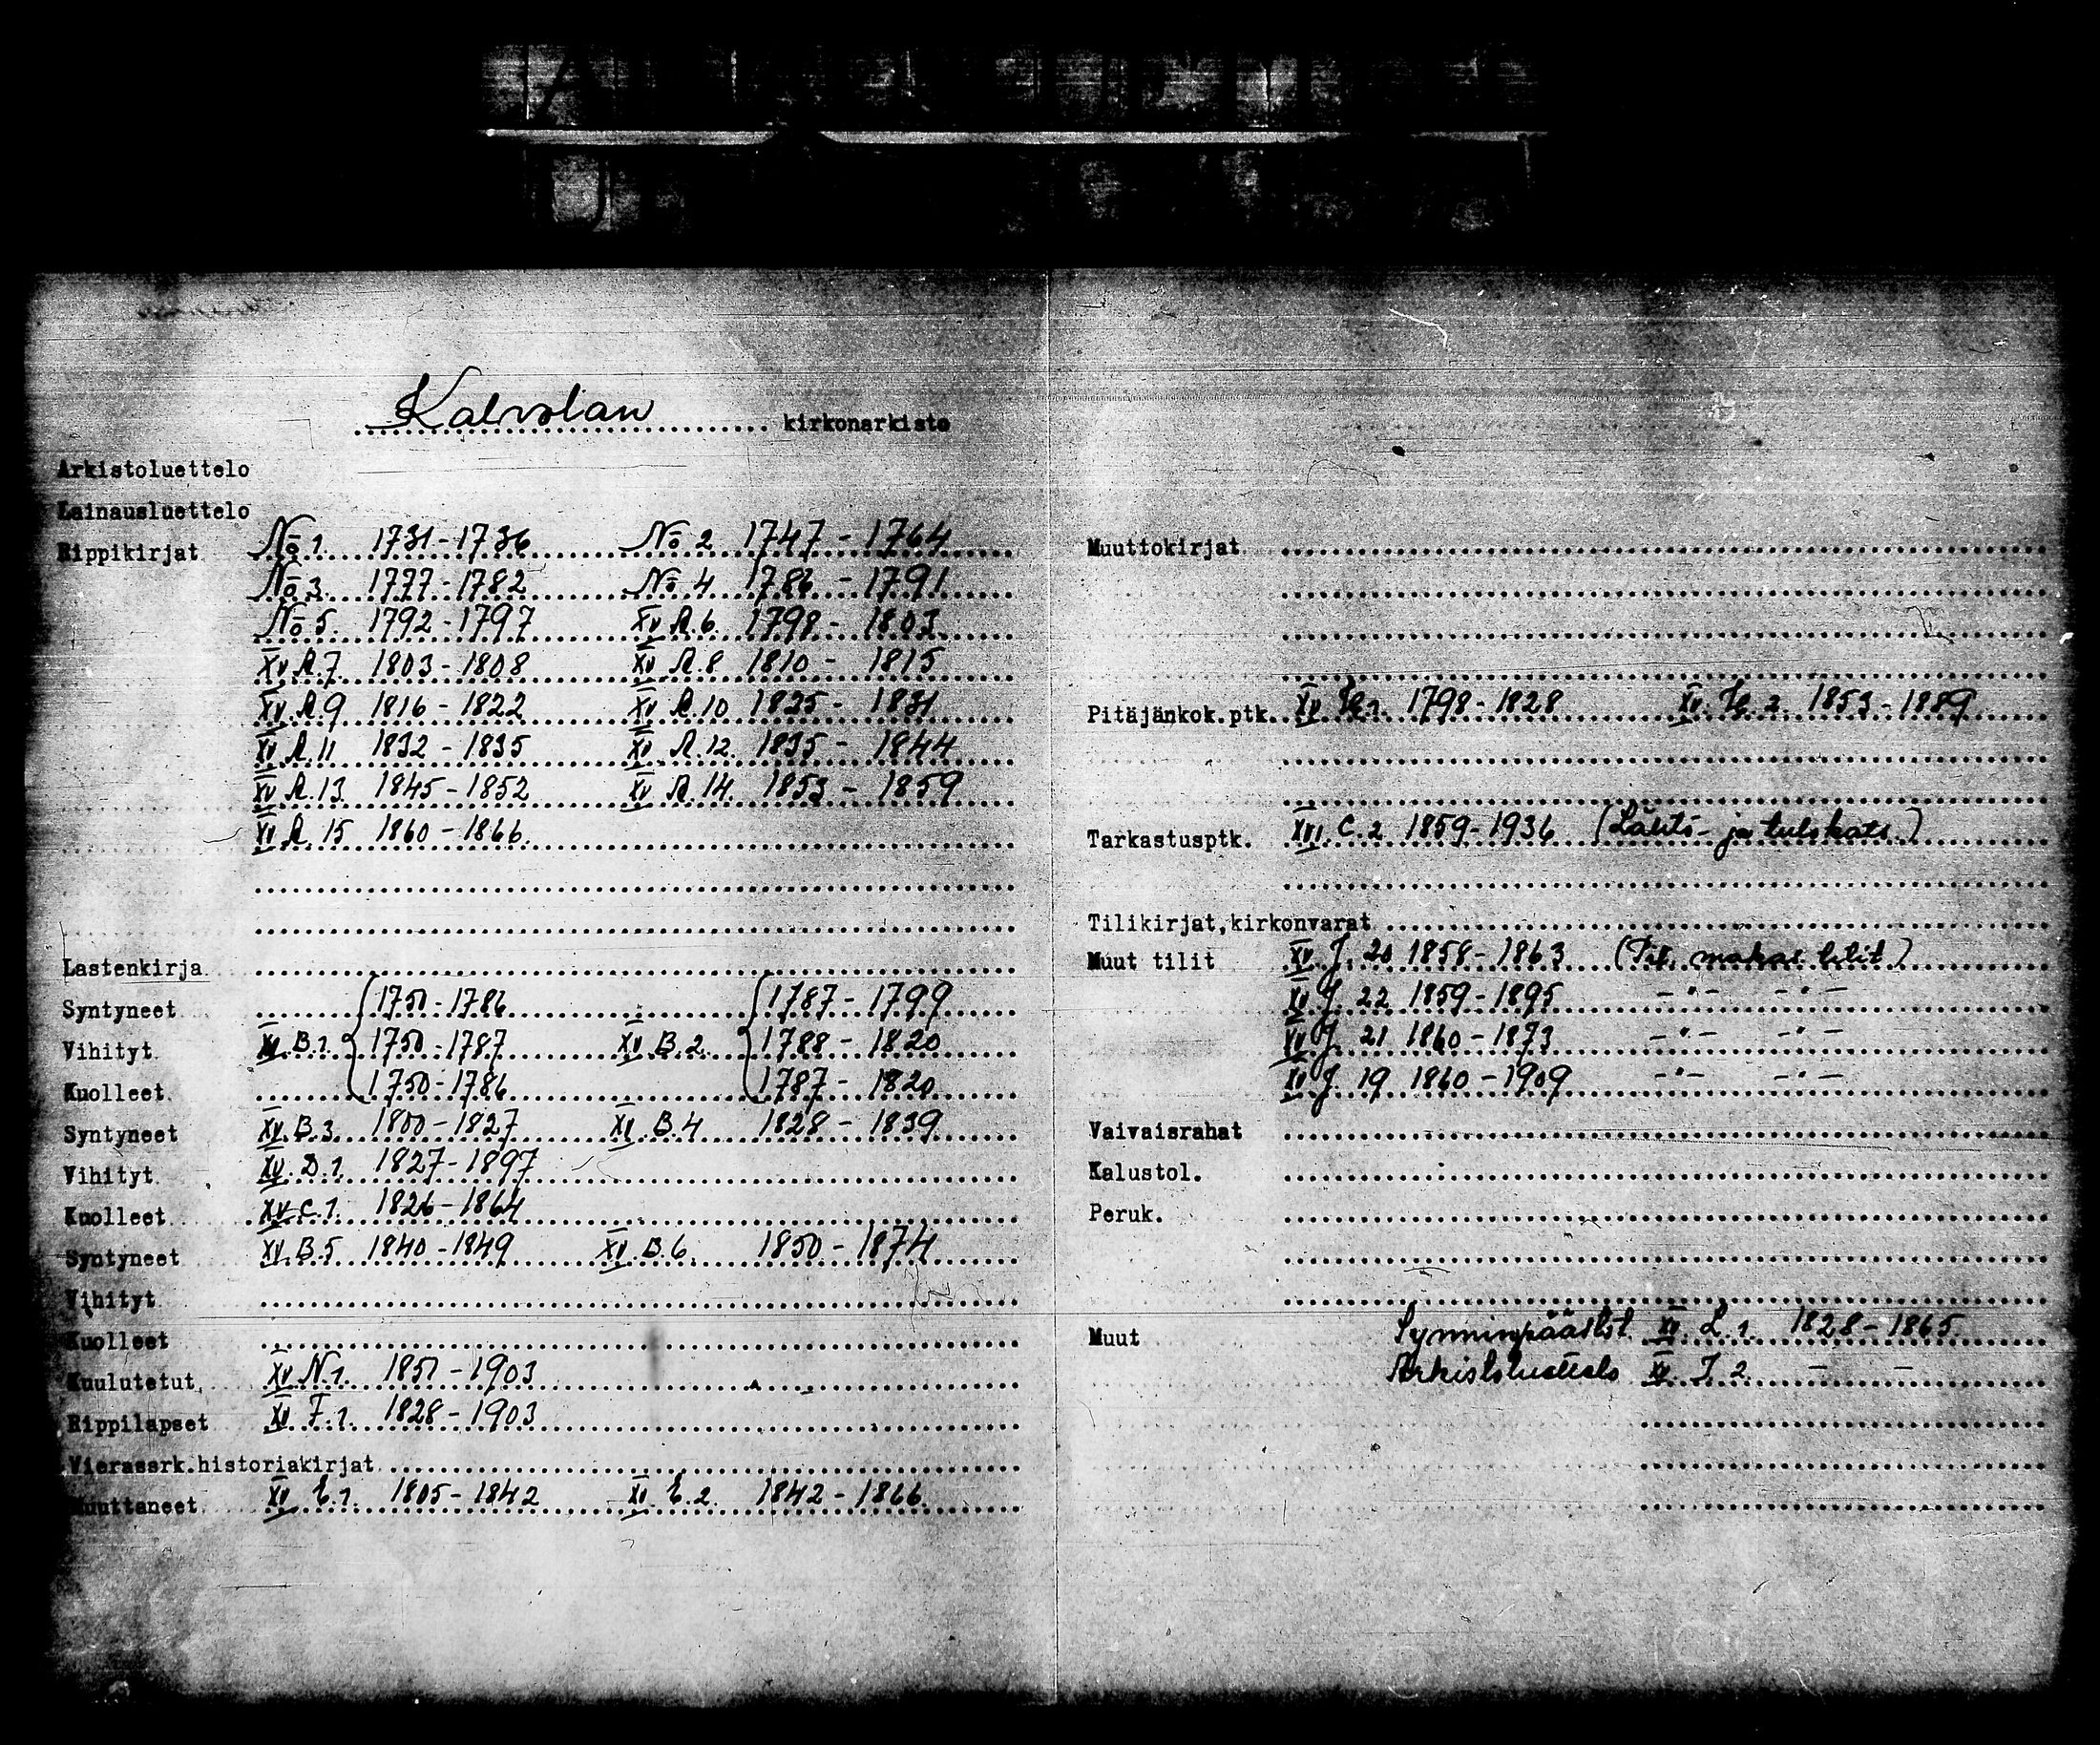 Kalvolan kirkonarkisto
Arkistoluettelo
Lainausluettelo
Rippikirjat No 1. 1731-1736 No 2 1747-1764
No 3. 1777-1782 No 4 1786-1791
No 5. 1792-1797 XV A.6. 1798-1803
XV A.7. 1803-1808 XV A.8 1810-1815
XV A.9 1816-1822 XV A.10 1825-1831
XV A.11 1832-1835 XV A.12. 1835-1844
XV A.13. 1845-1852 XV A.14. 1853-1859
XV A.15 1860-1866.
Lastenkirja
Syntyneet 1750-1786 1787-1799
Vihityt XV B.1. 1750-1787 XV B.2. 1788-1820
Kuolleet 1750-1786 1787-1820
Syntyneet XV B.3. 1800-1827 XV B.4 1828-1839
Vihityt XV D.1. 1827-1897
Kuolleet XV C.1. 1826-1864
Syntyneet XV B.5 1840-1849 XV B.6. 1850-1874
Vihityt
Kuolleet
Kuulutetut XV N.1. 1851-1903
Rippilapset XV F.1. 1828-1903
Vierassrk.historiakirjat
Muuttaneet XV E.1. 1805-1842 XV E.2. 1842-1866.
Muuttokirjat
Pitäjänkok.ptk. XV 1. 1798-1828 XV 2. 1853-1889
Tarkastusptk. XVI C.2 1859-1936 (Lähtö- ja tulokats.)
Tilikirjat,kirkonvarat
Muut tilit XV J. 20 1858-1863 (Pit. makas. tilit)
XV J. 22 1859-1895 -"- -"-
XV J. 21 1860-1873 -"- -"-
XV J. 19 1860-1909 -"- -"-
Vaivaisrahat
Kalustol.
Peruk.
Muut Synninpäästöt XV L.1. 1828-1865
Arkistoluettelo XV J 2. - -